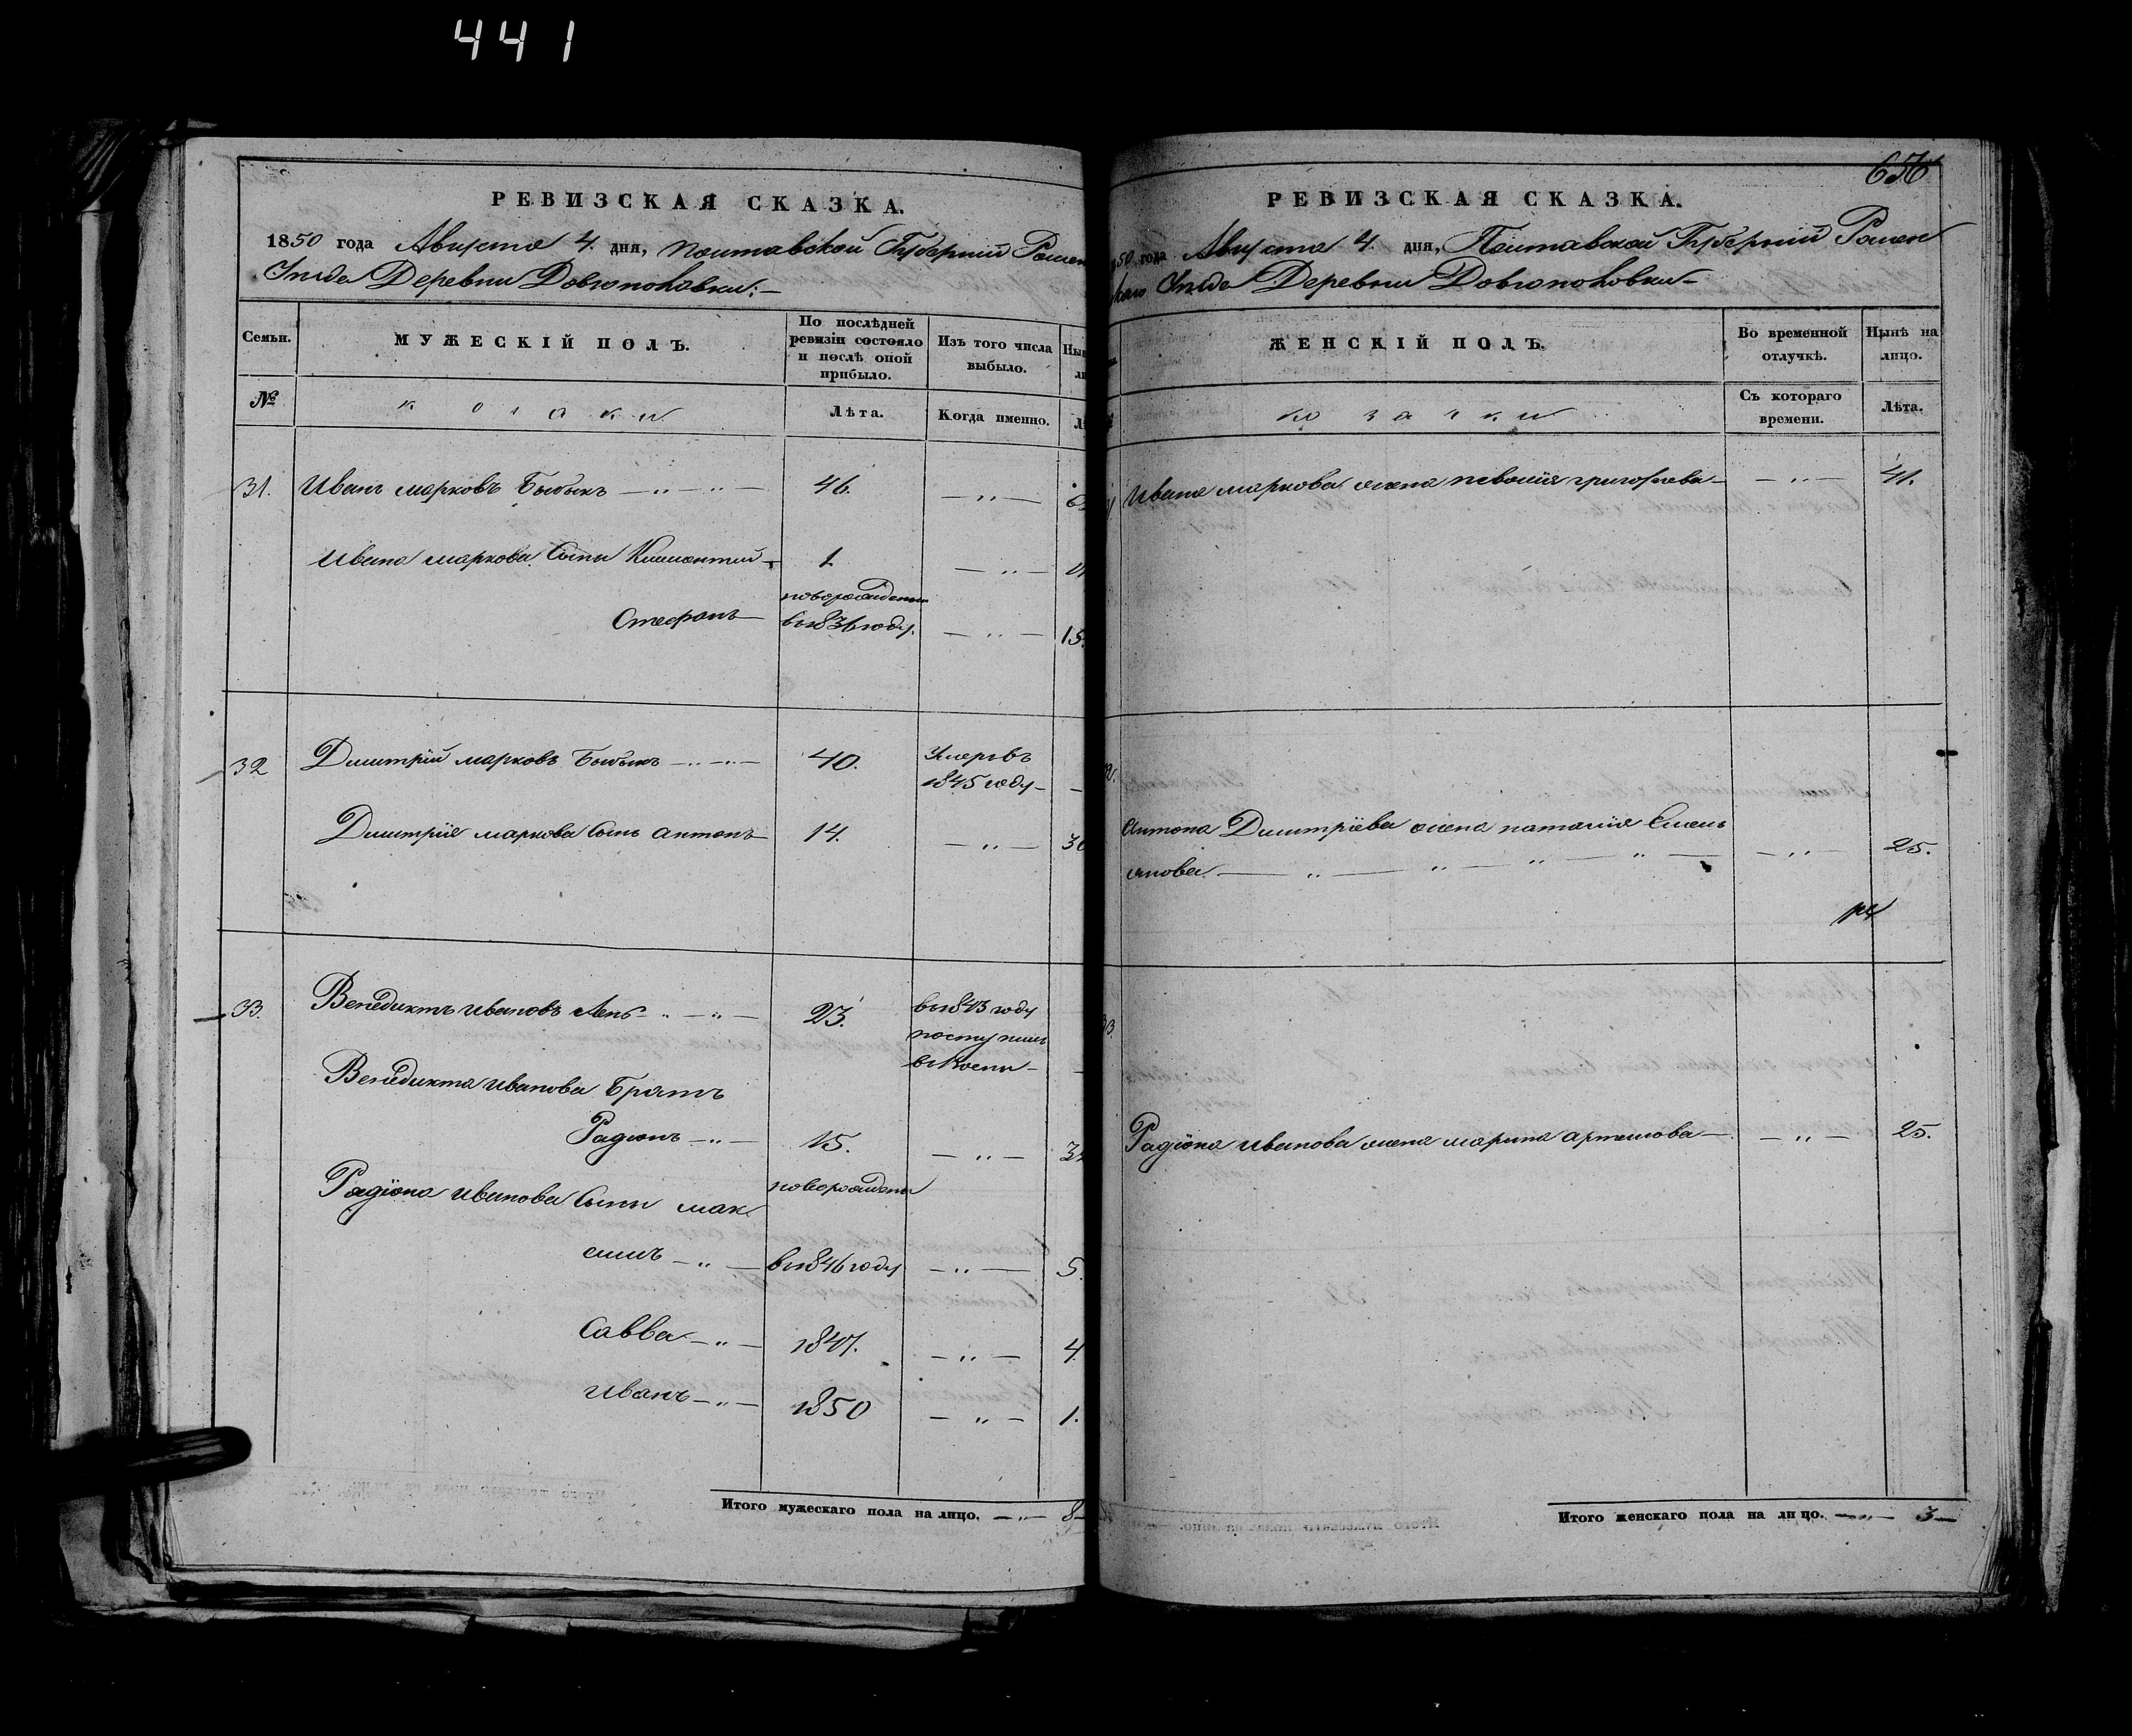 441
656
РЕВИЗСКАЯ СКАЗКА.
1850 года Августа 4. дня, Полтавской Губерніи Ромен
Уезда Деревни Довгополовки:—
Семьи.
МУЖЕСКІЙ ПОЛЪ.
По послѣдней ревизіи состояло и послѣ оной прибыло.
Изъ того числа выбыло.
№
козаки
Лѣта.
Когда именно.
31. Иванъ марковъ Бибикъ —„—„— 46. —„—
Ивана маркова Сыны Климентий 1. —„—
новорожденъ
Стефанъ въ 1836 году. —„— 15.
32 Дмитрій марковъ Бибикъ —„—„— 40. Умеръ въ
1845 году —
Дмитрія маркова Сынъ антонъ 14. —„—
33. Венедиктъ ивановъ Лень —„—„— 23. въ 1843 году
поступилъ
Венедикта иванова Братъ
Радионъ —„— 15. —„—
Радіона иванова Сыны мак новорожденъ
симъ —„— въ 1846 году —„— 5.
Савва —„— 1847. —„— 4.
иванъ —„— 1850 —„— 1.
Итого мужескаго пола на лицо. —„— 8—
РЕВИЗСКАЯ СКАЗКА.
50 года Августа 4. дня, Полтавской Губерніи Ромен
Уезда Деревни Довгополовки —
ЖЕНСКІЙ ПОЛЪ.
Во временной отлучкѣ.
Нынѣ на лицо.
козачки
Съ котораго времени.
Лѣта.
Ивана маркова жена григорьева — —„— 41.
Антона Дмитріева жена наталія Емель
янова —„—„—„— —„— 25.
Радіона иванова жена марина артемова —. —„— 25.
Итого женскаго пола на лицо. —„— 3—